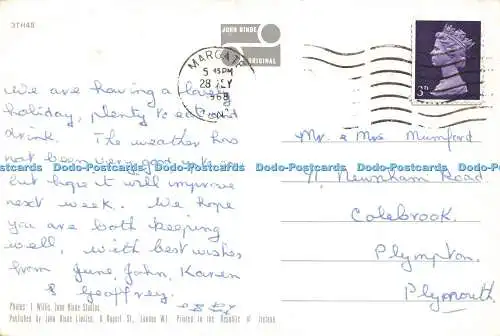 3TH48
JOHN HINDE
ORIGINAL
MARGATE
5 15PM
28 JLY
1968
3D
We are having a lovely
holiday, plenty to eat and
drink. The weather has
not been very good
but hope it will improve
next week. We hope
you are both keeping
well, with best wishes
from June, John, Karen
& Geoffrey.
Mr. & Mrs Mumford
11, Newnham Road.
Colebrook.
Plympton.
Plymouth
Dodo-Postcards Dodo-Postcards Dodo-Postcards Dodo-Postcards
Photo: E. Willis, John Hinde Studios.
Published by John Hinde Limited, 6 Rupert St., London W.1 Printed in the Republic of Ireland